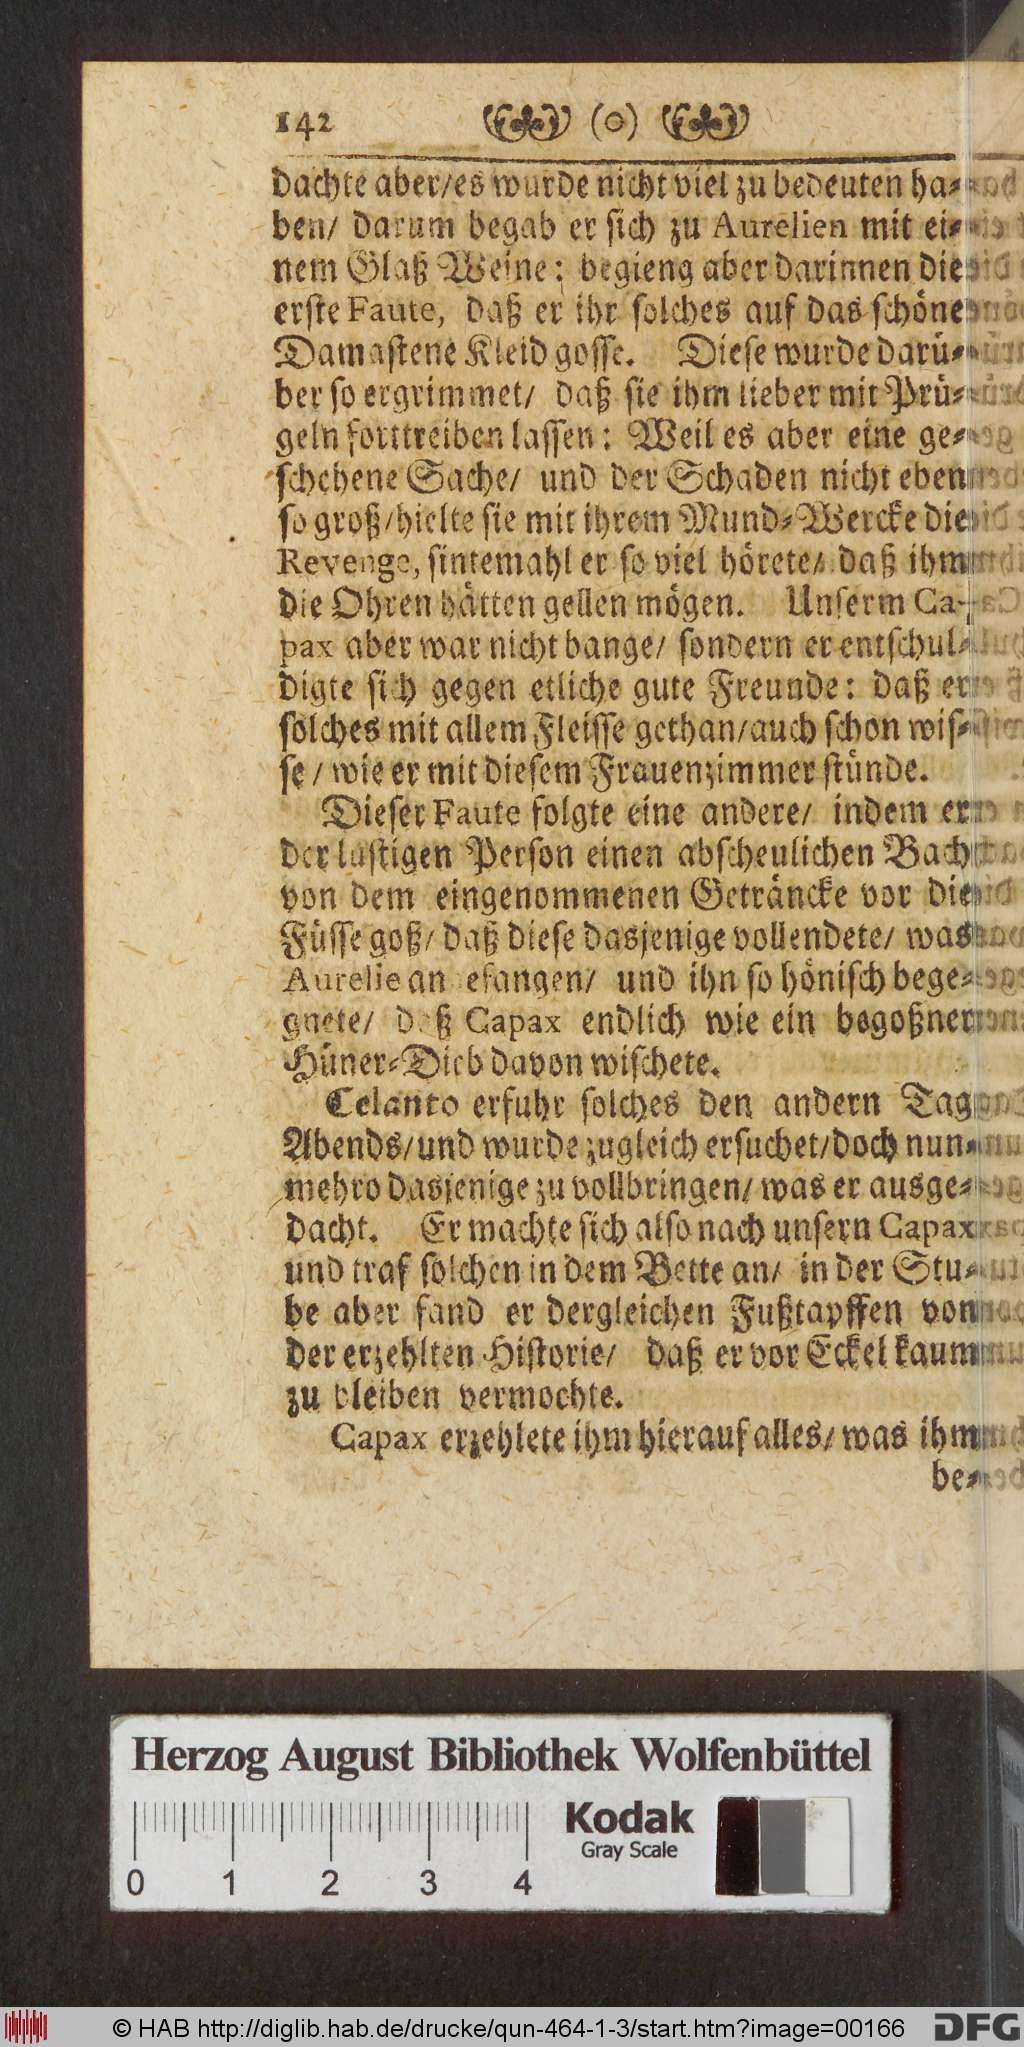 142 (o)
dachte aber/es wurde nicht viel zu bedeuten ha⸗
ben/ darum begab er sich zu Aurelien mit ei⸗
nem Glaß Weine; begieng aber darinnen die
erste Faute, daß er ihr solches auf das schöne
Damastene Kleid gosse. Diese wurde darü⸗
ber so ergrimmet/ daß sie ihm lieber mit Prü⸗
geln forttreiben lassen: Weil es aber eine ge⸗
schehene Sache/ und der Schaden nicht eben
so groß/hielte sie mit ihrem Mund⸗Wercke die
Revenge, sintemahl er so viel hörete/ daß ihm
die Ohren hätten gellen mögen. Unserm Ca-
pax aber war nicht bange/ sondern er entschul⸗
digte sich gegen etliche gute Freunde: daß er
solches mit allem Fleisse gethan/auch schon wis⸗
se / wie er mit diesem Frauenzimmer stünde.
Dieser Faute folgte eine andere/ indem er
der lustigen Person einen abscheulichen Bach
von dem eingenommenen Geträncke vor die
Füsse goß/ daß diese dasjenige vollendete/ was
Aurelie an efangen/ und ihn so hönisch bege⸗
gnete/ daß Capax endlich wie ein begoßner
Hüner⸗Dieb davon wischete.
Celanto erfuhr solches den andern Tag
Abends/und wurde zugleich ersuchet/doch nun⸗
mehro dasjenige zu vollbringen/ was er ausge⸗
dacht. Er machte sich also nach unsern Capax
und traf solchen in dem Bette an/ in der Stu⸗
be aber fand er dergleichen Fußtapffen von
der erzehlten Historie/ daß er vor Eckel kaum
zu bleiben vermochte.
Capax erzehlete ihm hierauf alles/ was ihm
be⸗
Herzog August Bibliothek Wolfenbüttel
Kodak
Gray Scale
0 1 2 3 4
© HAB http://diglib.hab.de/drucke/qun-464-1-3/start.htm?image=00166 DFG